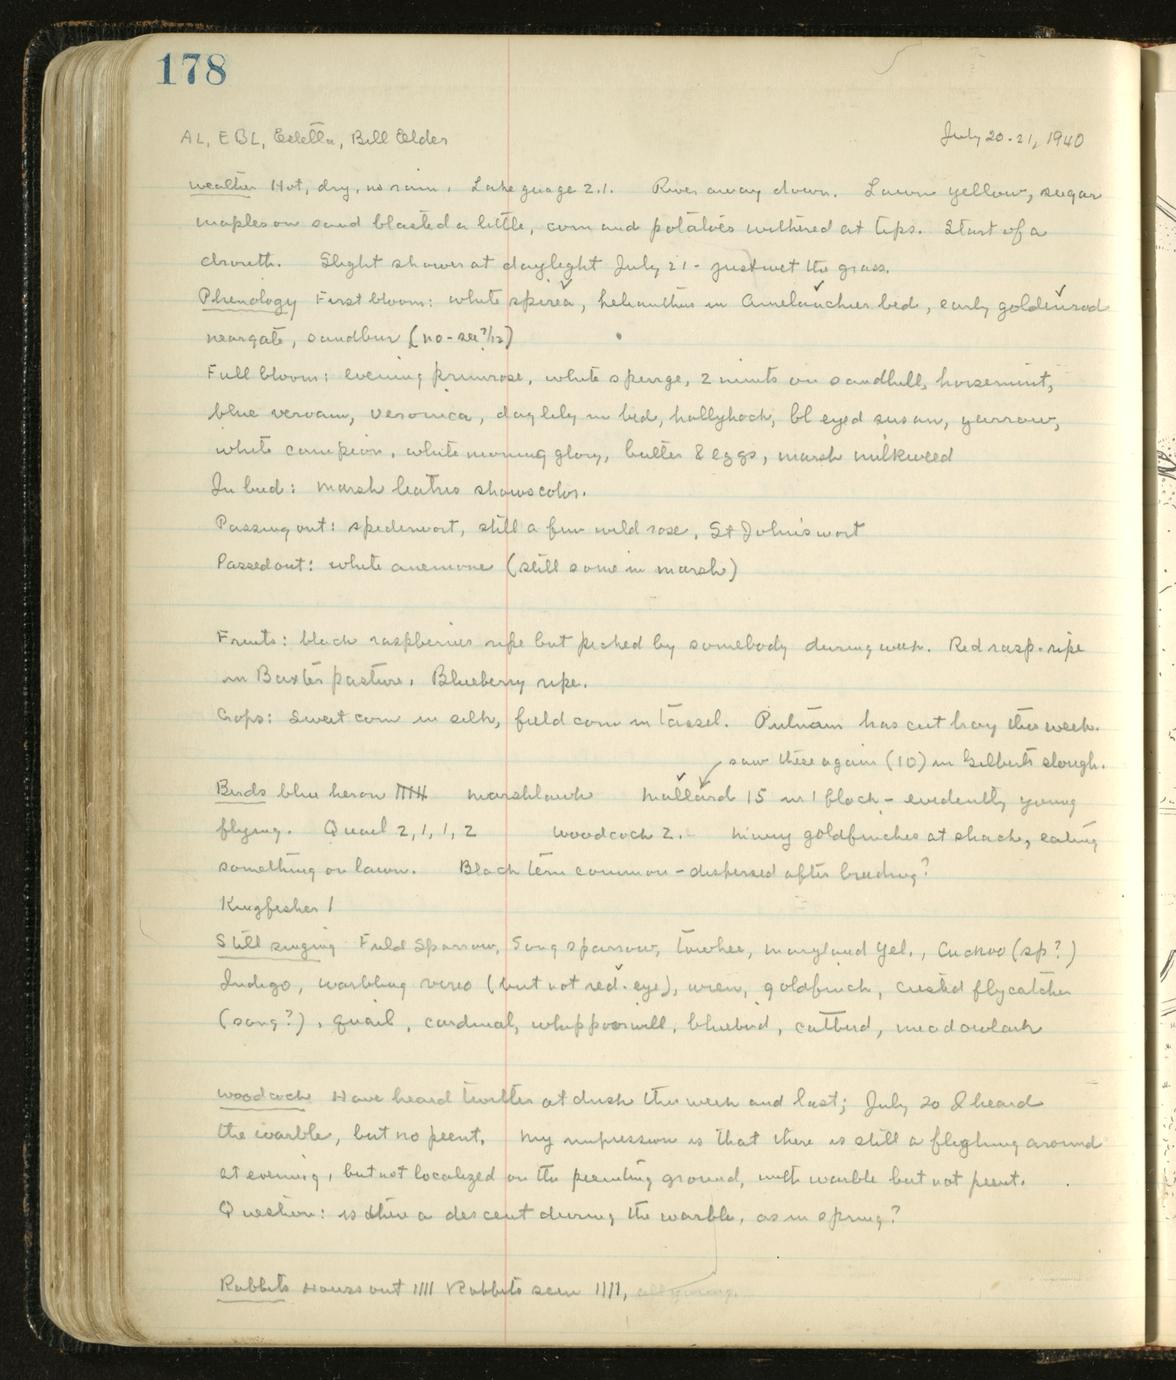 178
AL, EBL, Estella, Bill Elder July 20-21, 1940
Weather Hot, dry, no rain. Lake guage 2.1. River away down. Lawn yellow, sugar
maples on sand blasted a little, corn and potatoes withered at tips. Start of a
drouth. Slight shower at daylight July 21 - just wet the grass.
Phenology First bloom: white spirea, helianthus in Amelanchier bed, early goldenrod
near gate, sandbur (no - see 7/12)
Full bloom: evening primrose, white spurge, 2 mints on sandhill, horsemint,
blue vervain, veronica, day lily in bed, hollyhock, bl eyed susan, yarrow,
white campion, white morning glory, butter & eggs, marsh milkweed
In bud: marsh liatris shows color.
Passing out: spiderwort, still a few wild rose, St Johnswort
Passed out: white anemone (still some in marsh)
Fruits: black raspberries ripe but picked by somebody during week. Red rasp. ripe
in Baxter pasture. Blueberry ripe.
Crops: Sweet corn in silk, field corn in tassel. Putnam has cut hay this week.
saw these again (10) in Gilberts slough.
Birds blue heron marshhawk Mallard 15 in 1 flock - evidently young
flying. Quail 2, 1, 1, 2 Woodcock 2. Many goldfinches at shack, eating
something on lawn. Black tern common - dispersed after breeding?
Kingfisher 1
Still singing Field Sparrow, Song sparrow, towhee, maryland yel., Cuckoo (sp?)
Indigo, warbling vireo (but not red-eye), wren, goldfinch, crested flycatcher
(song?), quail, cardinal, whippoorwill, bluebird, catbird, meadowlark
Woodcock Have heard twitter at dusk this week and last; July 20 I heard
the warble, but no peent. My impression is that there is still a flighing around
at evening, but not localized on the peenting ground, with warble but not peent.
Question: is there a descent during the warble, as in spring?
Rabbits Hours out 1111 Rabbits seen 1111, all young.